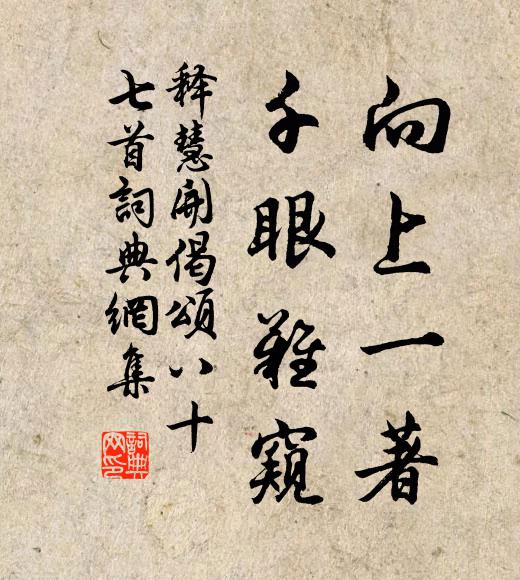 向上一著
千眼難窺
释慧開偈頌八十
七首詞典網集
詞典网印